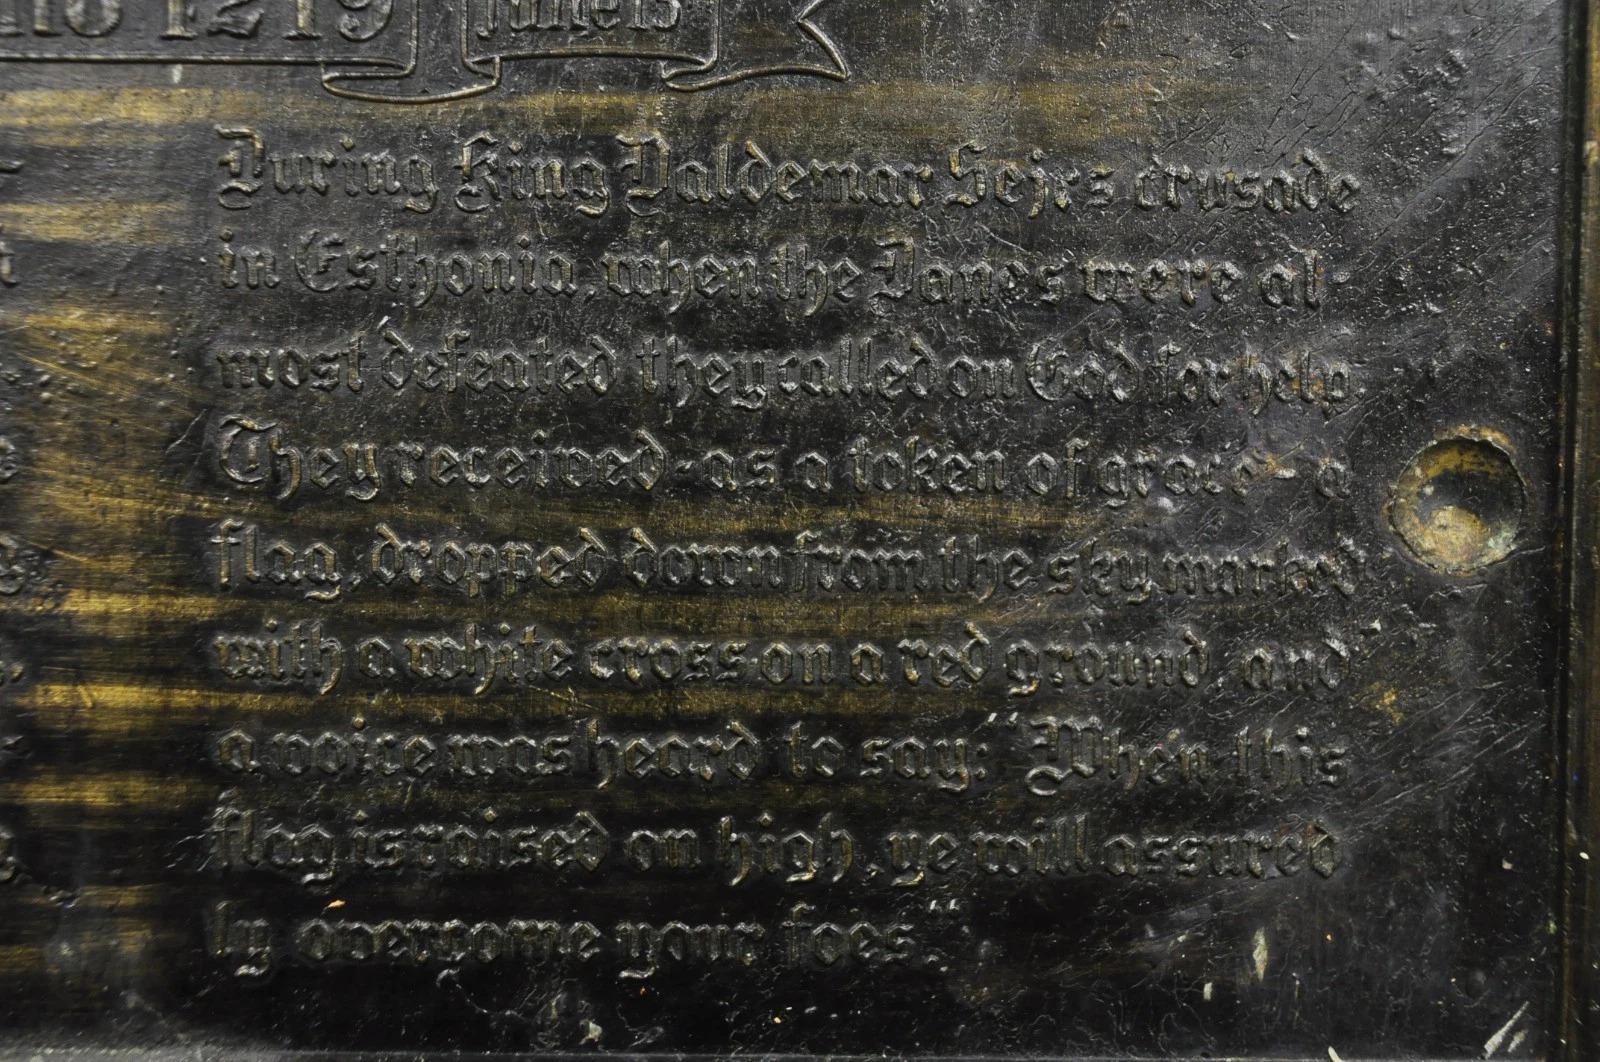 no 1219 June 15
During King Valdemar Sejrs crusade
in Esthonia, when the Danes were al-
most defeated they called on God for help.
They received - as a token of grace - a
flag, dropped down from the sky marked
with a white cross on a red ground, and
a voice was heard to say: "When this
flag is raised on high, ye will assured
ly overcome your foes."